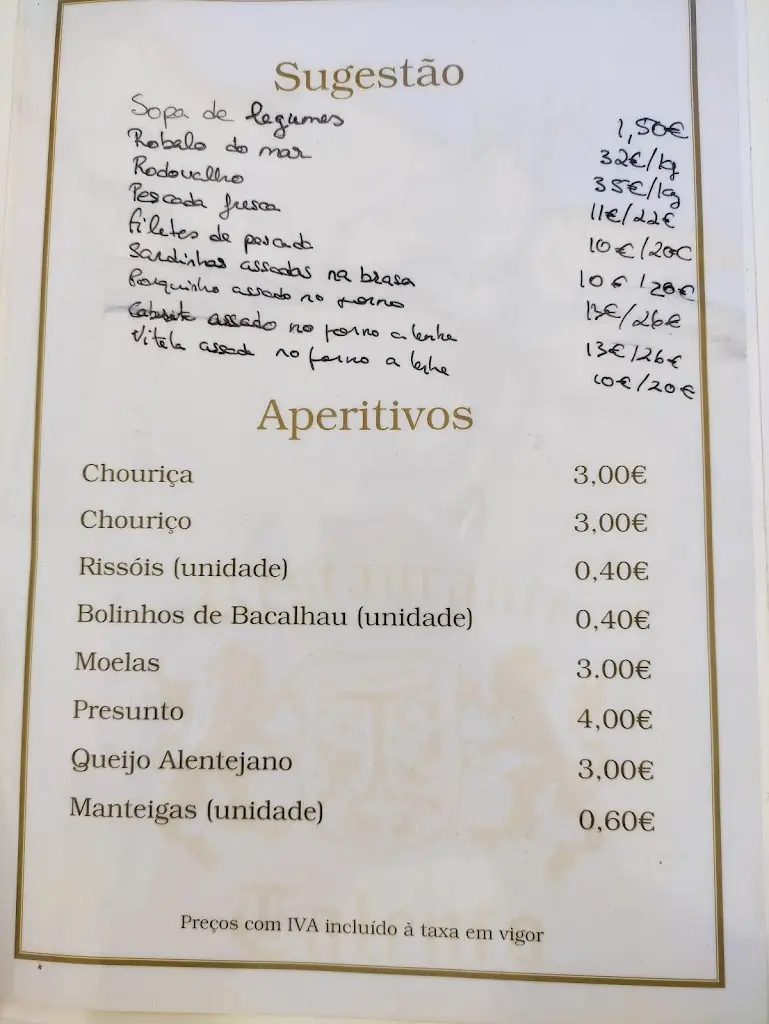 Sugestão
Sopa de legumes 1,50€
Robalo do mar 32€/kg
Rodovalho 35€/kg
Pescada fresca 11€/22€
filetes de pescada 10€/20€
Sardinhas assadas na brasa 10€/20€
Porquinho assado no forno 13€/26€
Cabrito assado no forno a lenha 13€/26€
Vitela assada no forno a lenha 10€/20€
Aperitivos
Chouriça 3,00€
Chouriço 3,00€
Rissóis (unidade) 0,40€
Bolinhos de Bacalhau (unidade) 0,40€
Moelas 3.00€
Presunto 4,00€
Queijo Alentejano 3,00€
Manteigas (unidade) 0,60€
Preços com IVA incluído à taxa em vigor